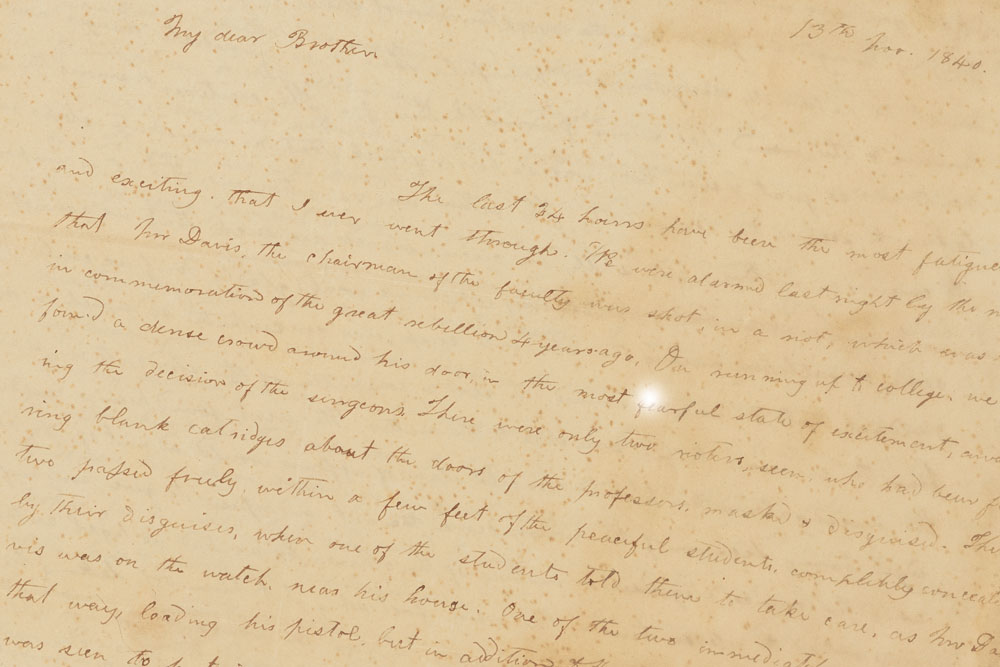 13th Nov. 1840.
My dear Brother
The last 24 hours have been the most fatigue
and exciting, that I ever went through. We were alarmed last night by the
that Mr Davis, the chairman of the faculty was shot, in a riot, which was
in commemoration of the great rebellion 4 years ago. On running up to college, we
form'd a dense crowd around his door, in the most fearful state of excitement, awa
ing the decision of the surgeons. There were only two rioters, seen, who had been f
ring blank catridges about the doors of the professors, masked & disguised. The
two passed freely within a few feet of the peaceful students, completely conceal
by their disguises, when one of the students told them to take care, as Mr Da
vis was on the watch, near his house. One of the two immediat
that way, loading his pistol, but in addition
was seen to